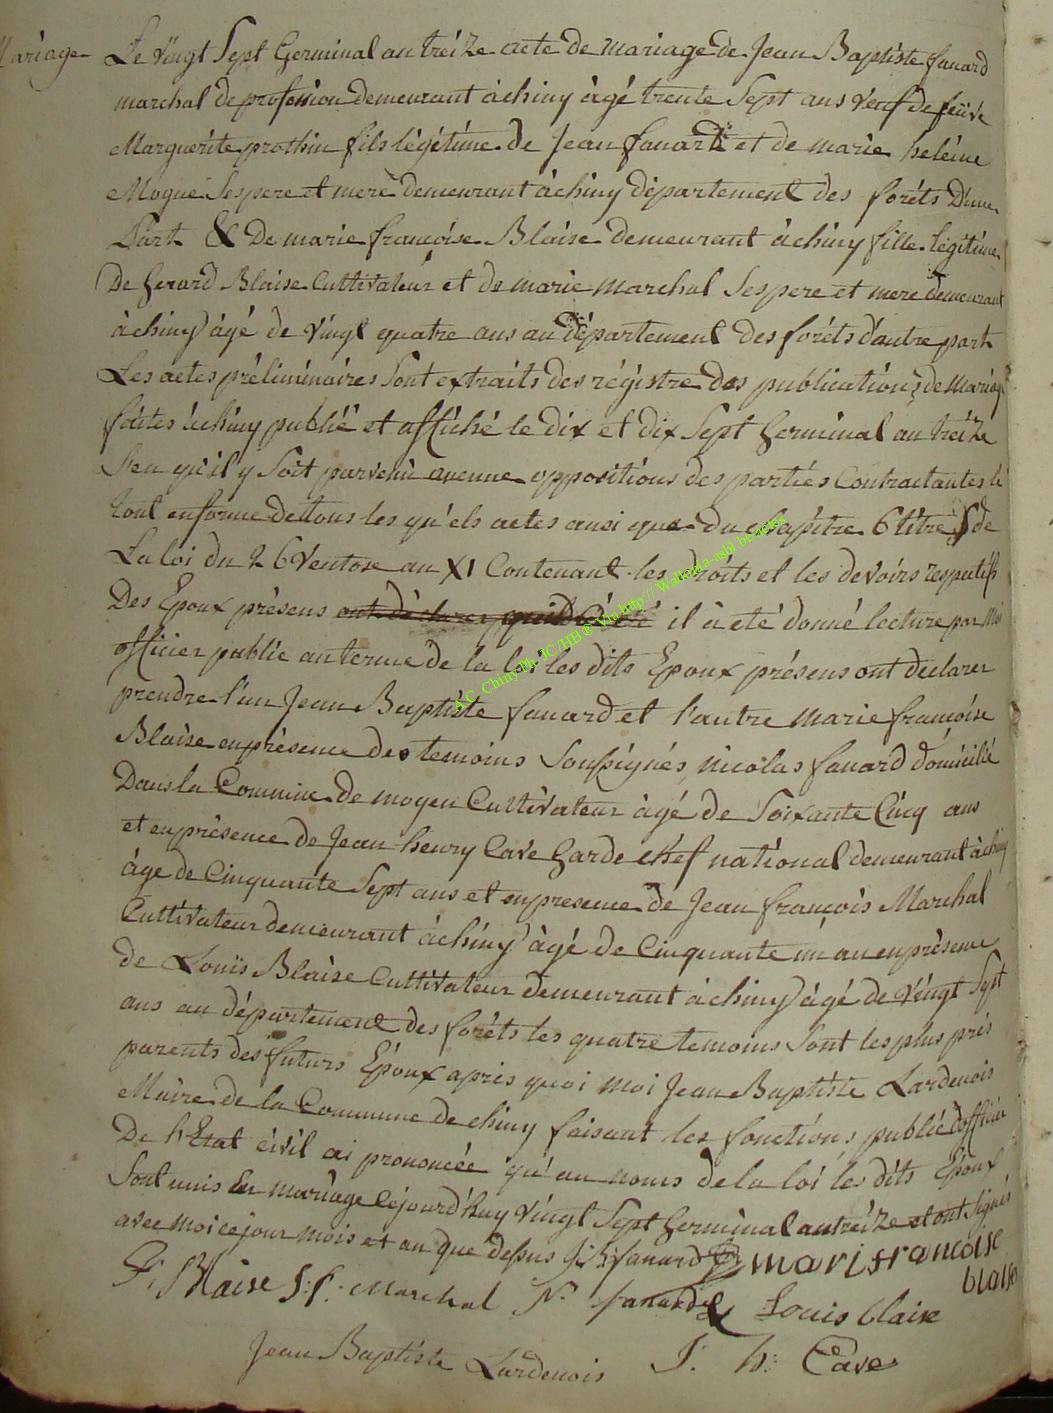 Mariage Le Vingt Sept Germinal an treize acte de mariage de Jean Baptiste fanard
marchal de profession demeurant à chiny âgé trente Sept ans veuf de feüve
Marguerite prothin fils légitime de Jean fanard et de marie heléine
Moguë Ses pere et mere demeurant à chiny département des foréts D'une
Part & De marie françoise Blaise demeurant à chiny fille légitime
De Gerard Blaise Cultivateur et de marie marchal Ses pere et mere demeurant
à chiny âgé de vingt quatre ans au département des foréts d'autre part
Les actes préliminaires Sont extraits des régistre des publications de Mariage
faites à chiny publié et affiché le dix et dix Sept Germinal an treize
S'en qu'il y Soit parvenu aucune oppositions des parties Contractantes le
tout enforme de tous les qu'els actes ausi que du chapitre 6 titre 5 de
La loi du 26 Ventose an XI Contenant les droits et les devoirs respectifs
Des Epoux présens ont déclarer il à eté donné lecture par Moi
officier public au terme de la loi les dits Epoux présens ont declarer
prendre l'un Jean Baptiste fanard et l'autre Marie françoise
Blaise en présence des temoins Soussignés nicolas fanard domicilié
Dans la Commune de moyen Cultivateur âgé de Soixante Cinq ans
et en présence de Jean henry Cave Garde chef national demeurant à chiny
âge de Cinquante Sept ans et en presence de Jean françois Marchal
Cultivateur demeurant à chiny âgé de Cinquante un an en présence
de Louis Blaise Cultivateur demeurant à chiny âgé de Vingt Sept
ans au département des foréts les quatre temoins Sont les plus prés
parents des futurs Epoux apres quoi moi Jean Baptiste Lardenois
Maire de la Commune de chiny faisant les fonctions publié d'officier
De l'Etat civil ai prononcée qu'au noms de la loi les dits Epoux
Sont unis En mariage Cejourd'huy Vingt Sept Germinal an treize et ont Signés
avec moi ce jour mois et an que dessus J: B fanard mari francoise
blaise
G: Blaise J: f: Marchal N: fanard Louis blaise
Jean Baptiste Lardenois J: h: Cave
AC Chiny M-JC/HB ® Via http:// Wallonia-asbl be actes